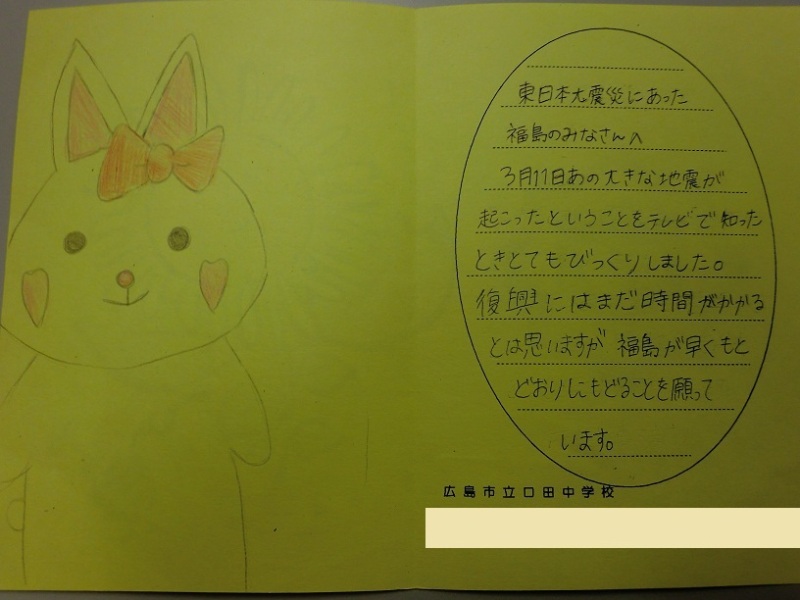 東日本大震災にあった
福島のみなさんへ
3月11日あの大きな地震が
起こったということをテレビで知った
ときとてもびっくりしました。
復興にはまだ時間がかかる
とは思いますが 福島が早くもと
どおりにもどることを願って
います。
広島市立口田中学校